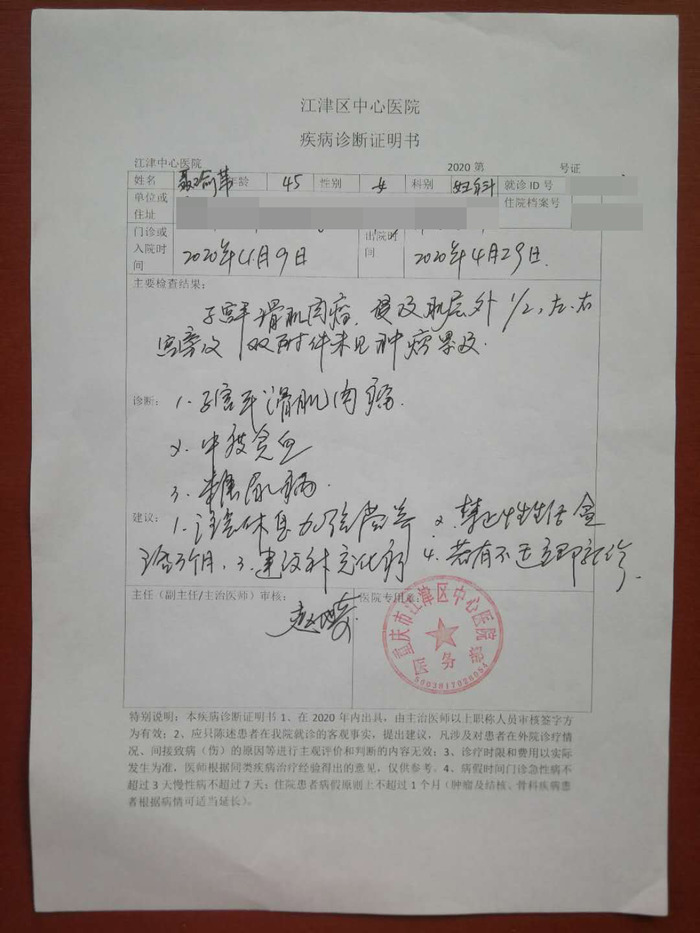 江津区中心医院
疾病诊断证明书
江津中心医院 2020 第 号证
姓名 年龄 45 性别 女 科别 妇科 就诊 ID 号
单位或住址 住院档案号
门诊或入院时间 2020年4月9日 出院时间 2020年4月29日
主要检查结果：
子宫平滑肌肉瘤，侵及肌层外1/2，左、右
宫旁及双附件未见肿瘤累及．
诊断：1．子宫平滑肌肉瘤．
2．中度贫血
3．糖尿病．
建议：1．注意休息加强营养 2．禁止性生活盆
浴3个月，3．建议补充化疗 4．若有不适立即就诊，
主任（副主任/主治医师）审核： 医院专用章：
重庆市江津区中心医院
医务部
特别说明：本疾病诊断证明书 1、在 2020 年内出具，由主治医师以上职称人员审核签字方
为有效；2、应只陈述患者在我院就诊的客观事实，提出建议，凡涉及对患者在外院诊疗情
况、间接致病（伤）的原因等进行主观评价和判断的内容无效；3、诊疗时限和费用以实际
发生为准，医师根据同类疾病治疗经验得出的意见，仅供参考。4、病假时间门诊急性病不
超过 3 天慢性病不超过 7 天；住院患者病假原则上不超过 1 个月（肿瘤及结核、骨科疾病患
者根据病情可适当延长）。